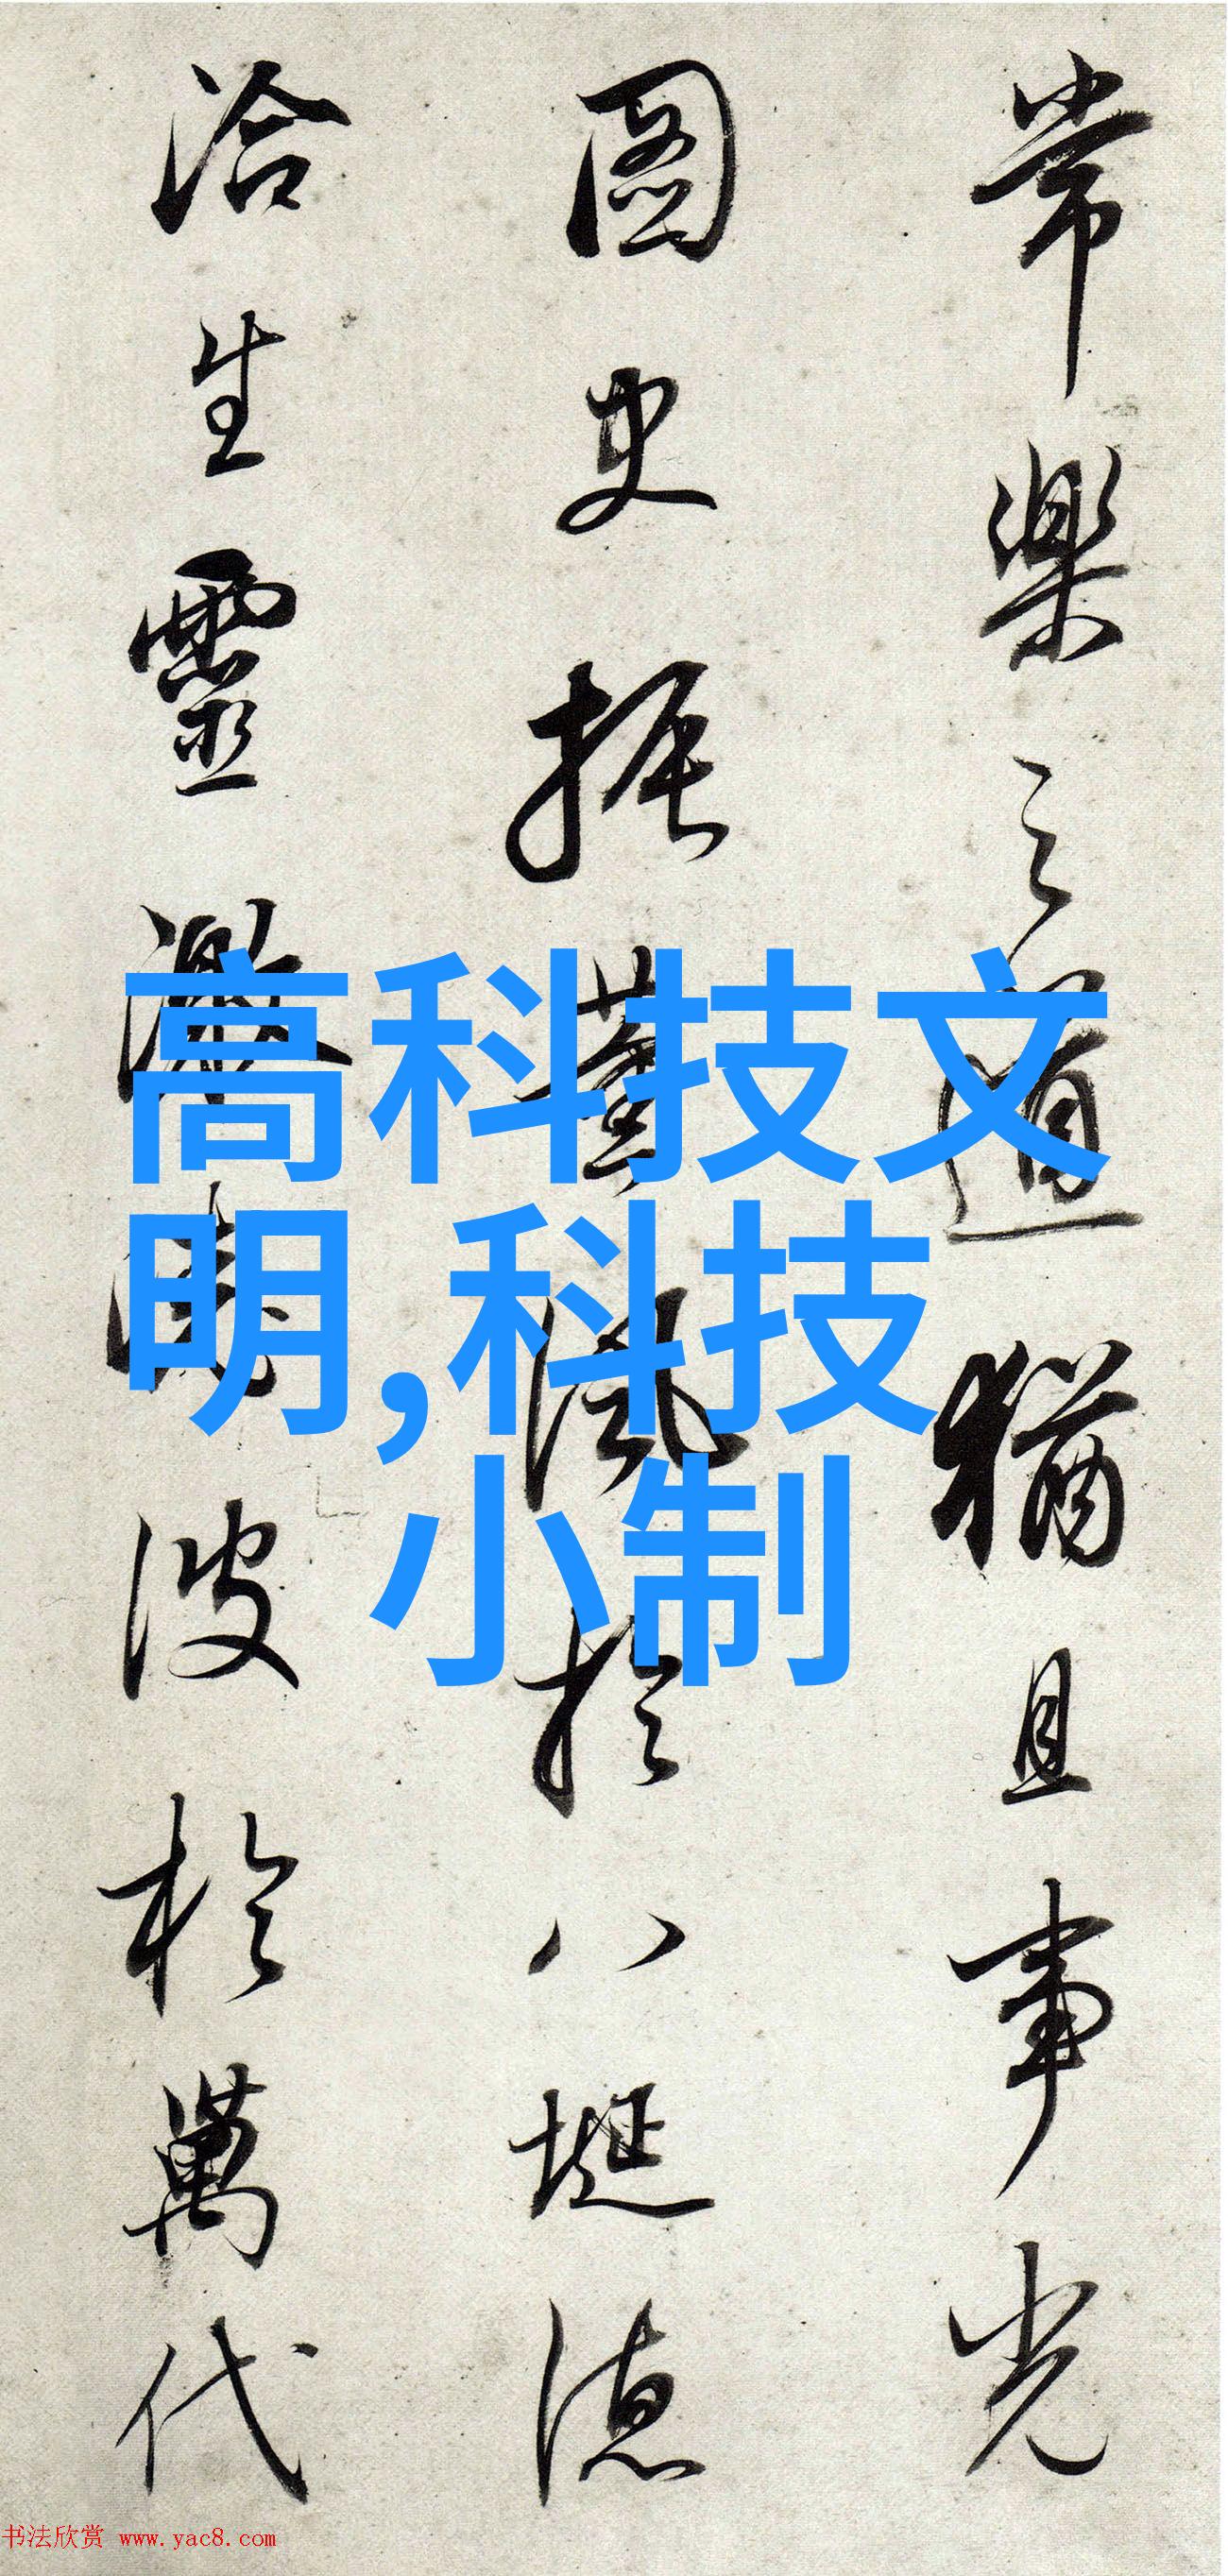 常樂之道猶且事光
圖史振薰風於八埏德
洽生靈激波於萬代
高科技文
明,科技
小制
书法欣赏 www.yac8.com